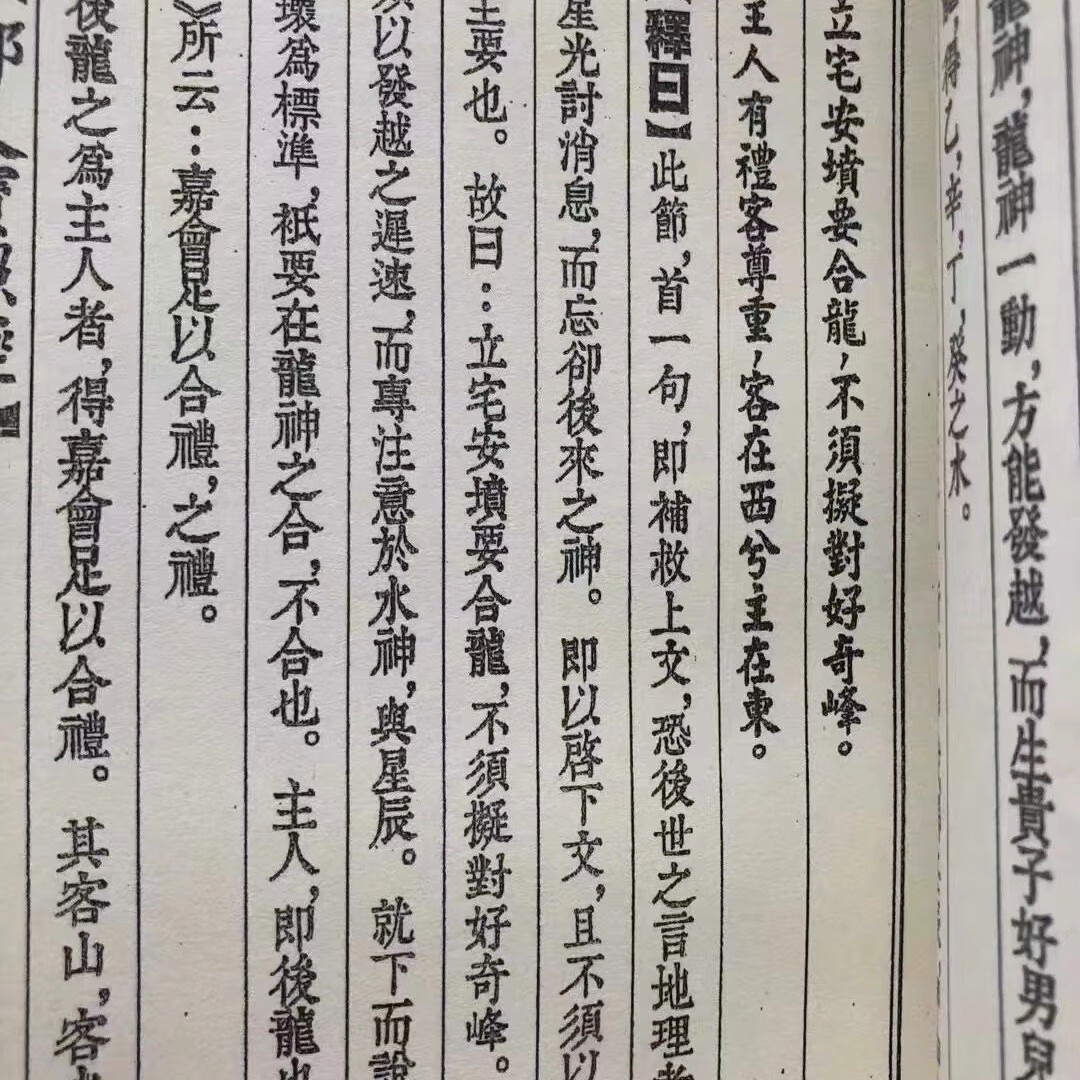 龍神，龍神一動，方能發越，而生貴子好男兒
得乙，辛，丁，癸之水。
立宅安墳要合龍，不須擬對好奇峰。
主人有禮客尊重，客在西兮主在東。
【釋曰】此節，首一句，即補救上文，恐後世之言地理者
星光討消息，而忘卻後來之神。即以啓下文，且不須以
主要也。故曰：立宅安墳要合龍，不須擬對好奇峰。
須以發越之遲速，而專注意於水神，與星辰。就下而說
壞為標準，衹要在龍神之合，不合也。主人，即後龍也
》所云：嘉會足以合禮，之禮。
後龍之為主人者，得嘉會足以合禮。其客山，客水